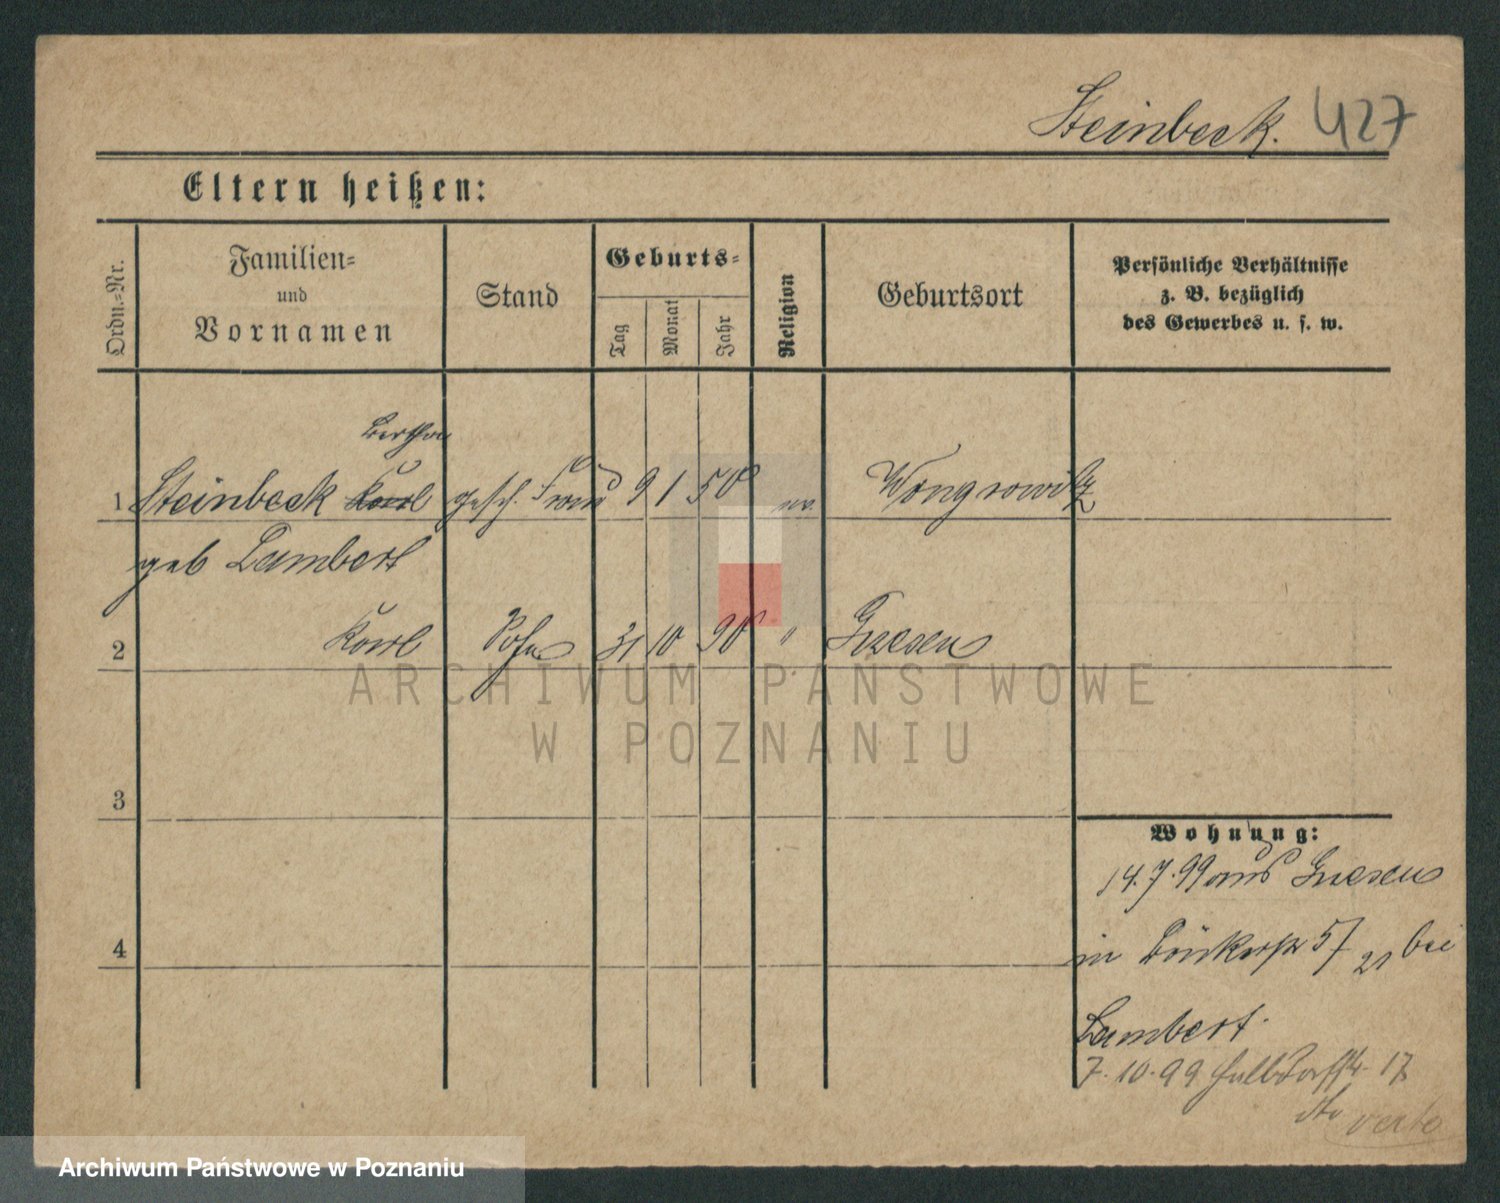 Steinbeck. 427
Eltern heißen:
Ordn.-Nr.
Familien-
und
Vornamen
Stand
Geburts-
Tag
Monat
Jahr
Religion
Geburtsort
Persönliche Verhältnisse
z. B. bezüglich
des Gewerbes u. s. w.
Bertha
1 Steinbeck Karl gesch. Frau 9 1 50 ev. Wongrowitz
geb Lambert
2 Karl Sohn 31 10 90 " Gnesen
3
4
Wohnung:
14.7.99 aus Gnesen
in 57 21 bei
Lambert.
7.10.99 Halbdorfstr. 17
verte
ARCHIWUM PAŃSTWOWE
W POZNANIU
Archiwum Państwowe w Poznaniu